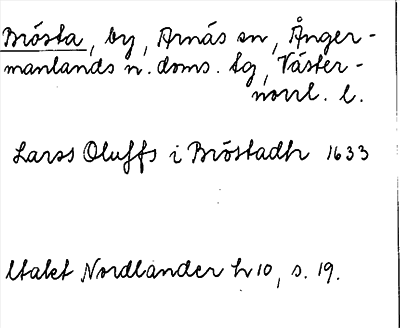 Brösta, by, Arnäs sn, Ånger-
manlands n. doms. tg, Väster-
norrl. l.
Larss Oluffs i Bröstadh 1633
Utalet Nordlander h 10, s. 19.